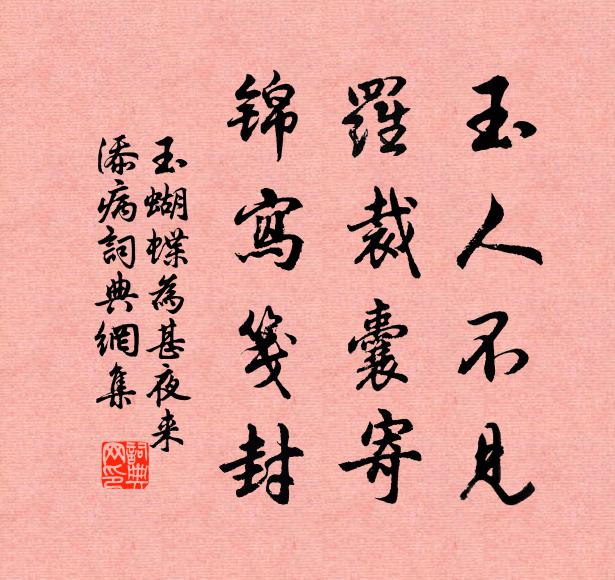 玉人不見
羅裁囊寄
锦寫箋封
玉蝴蝶為甚夜来
添病詞典網集
詞典网印